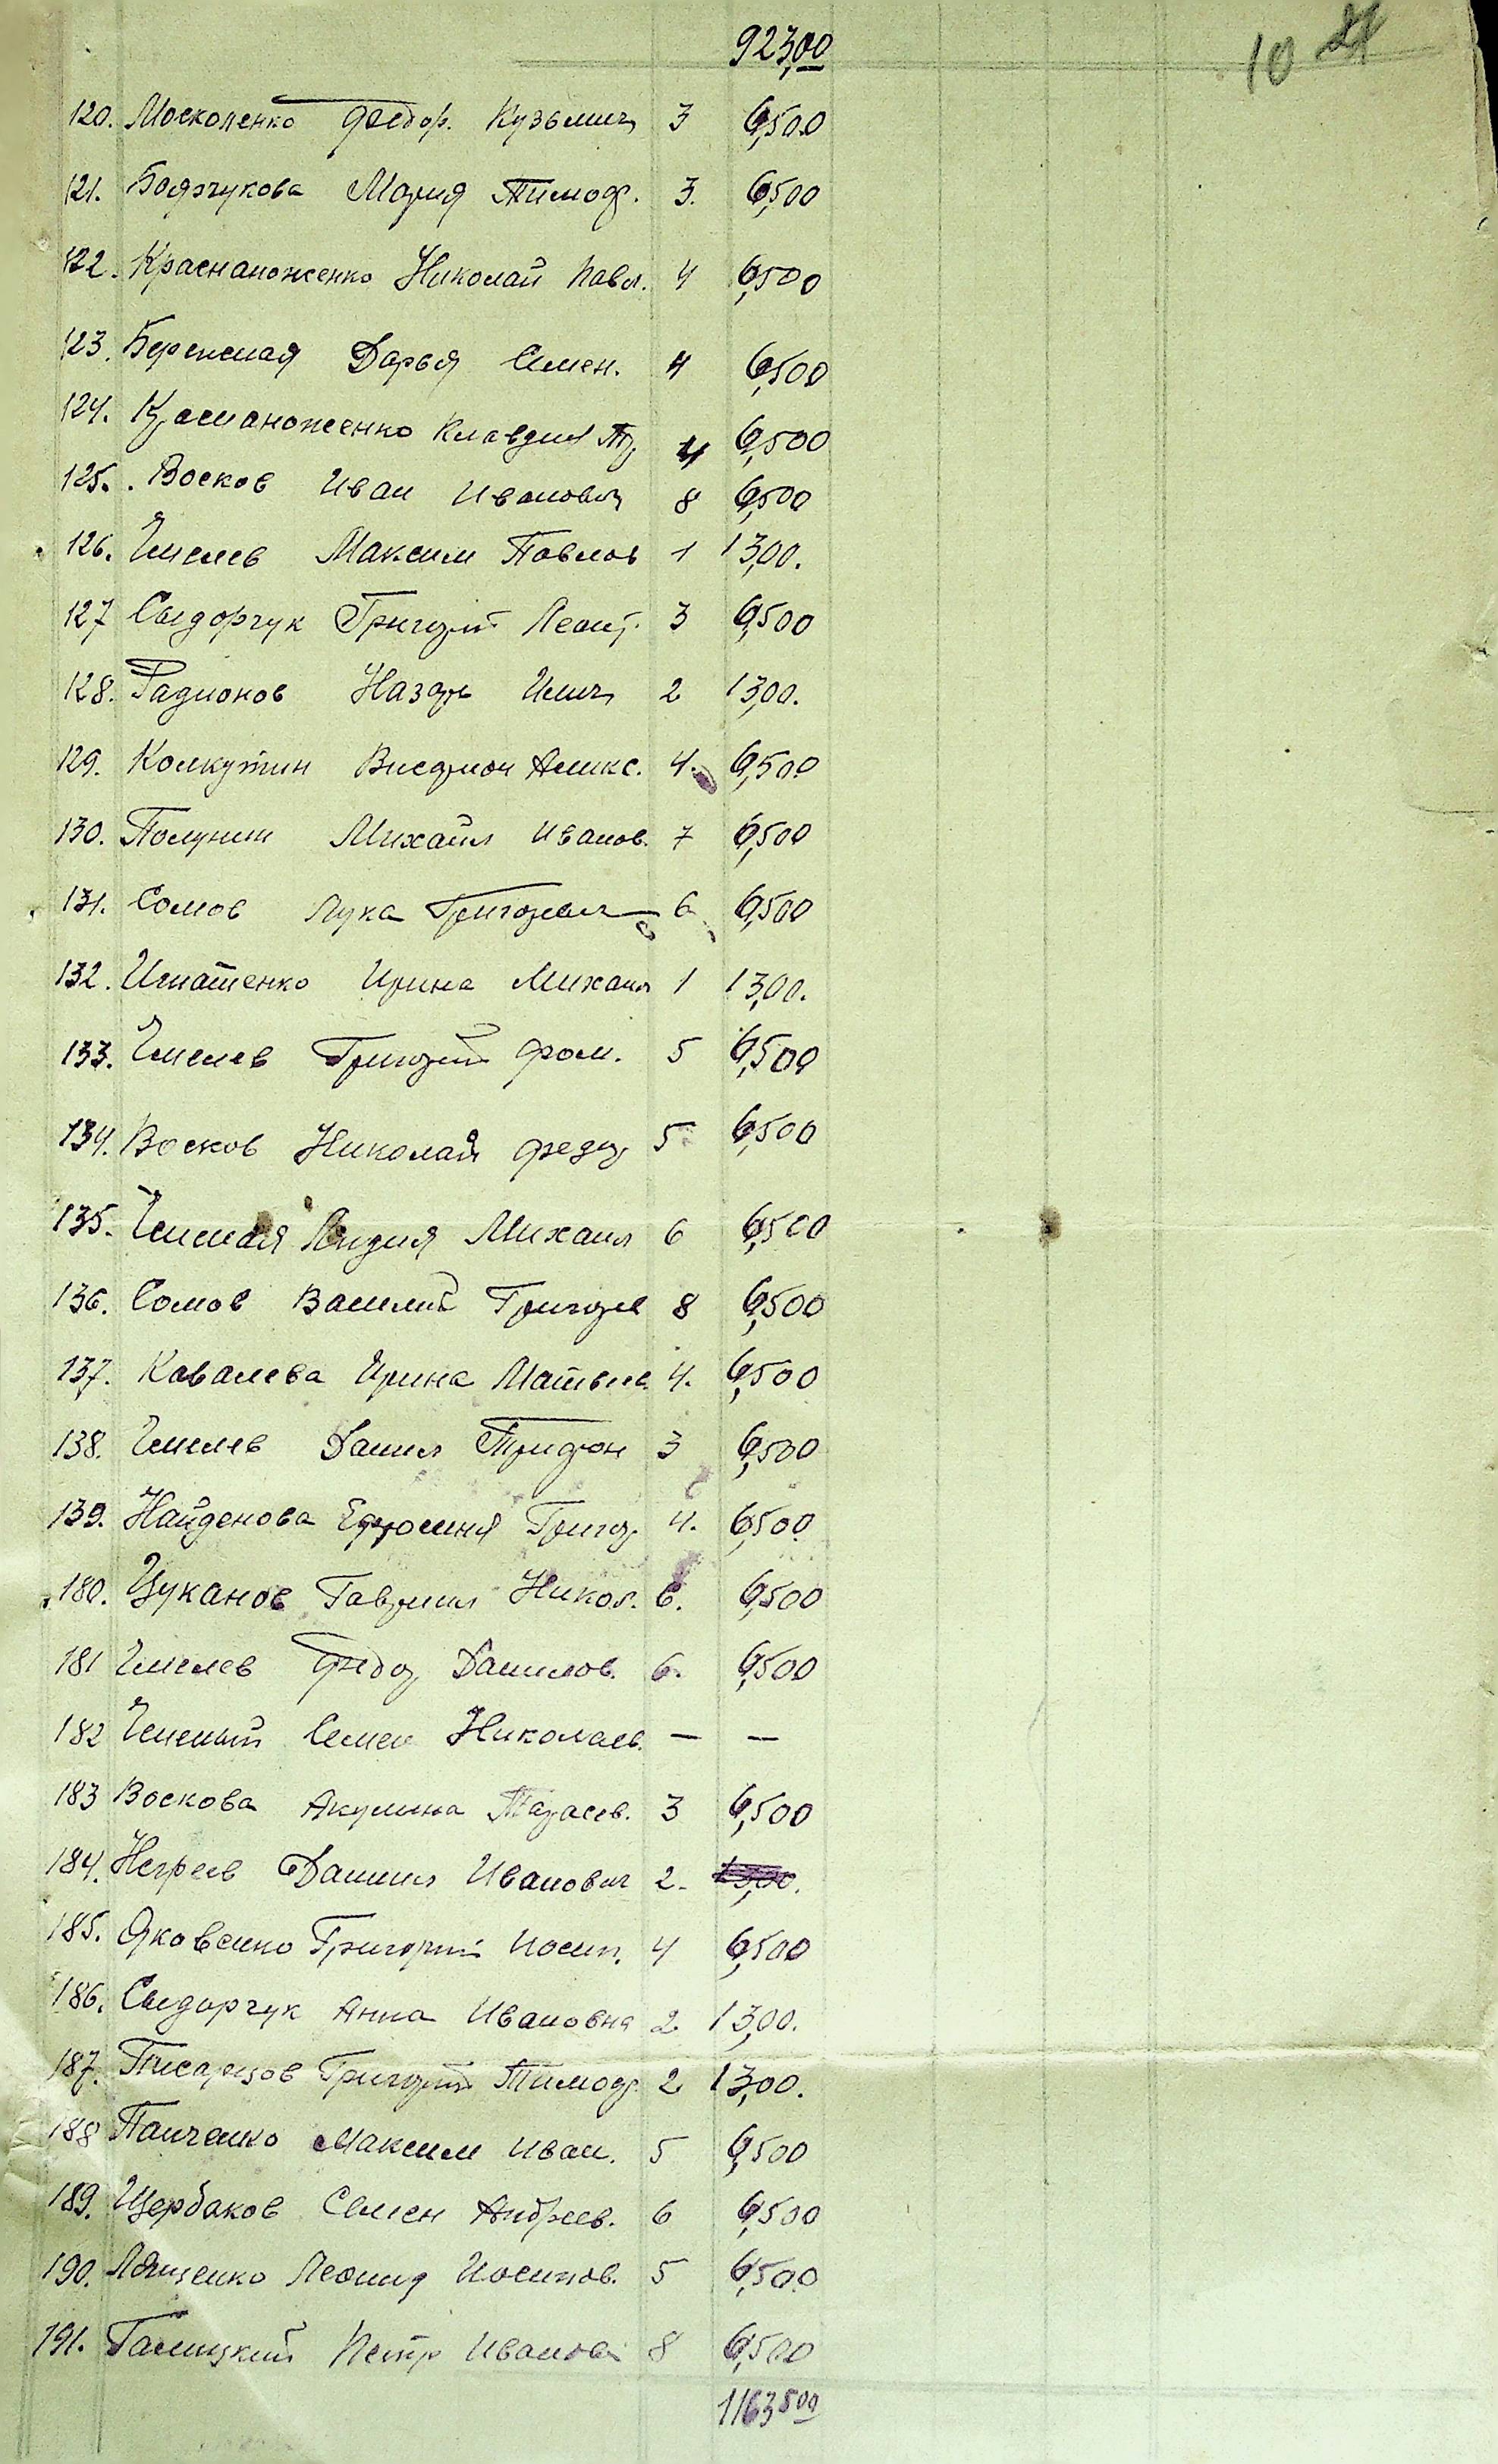 923,00
10
120. Москаленко Федор. Кузьмич 3 6,500
121. Боярчукова Мария Тимоф. 3. 6,500
122. Краснаноженко Николай Павл. 4 6,500
123. Бережная Дарья Семен. 4 6,500
124. Красноноженко Клавдия 4 6,500
125. Восков Иван Иванович 8 6,500
126. Чмелев Максим Павлов 1 13,00.
127 Сыдорчук Григорий Леонт. 3 6,500
128. Радионов Назар Ильич 2 13,00.
129. Колкутин Алекс. 4. 6,500
130. Полунин Михаил Иванов. 7 6,500
131. Сомов Лука Григорьевич 6 6,500
132. Игнатенко Ирина Михаил 1 13,00.
133. Чмелев Григорий Фом. 5 6,500
134. Восков Николай Федор 5 6,500
135. Лидия Михаил 6 6,500
136. Сомов Василий Григорьев 8 6,500
137. Кавалева Ирина Матвеев. 4. 6,500
138. Чмелев Данил Трифон 3 6,500
139. Найденова Ефросиния Григор 4. 6,500
180. Цуканов Гаврил Никол. 6. 6,500
181 Чмелев Федор Данилов. 6. 6,500
182 Семен Николаев. — —
183 Воскова Акулина Тарасев. 3 6,500
184. Негреев Даниил Иванович 2. 13,00.
185. Яковенко Григорий Иосип. 4 6,500
186. Сыдорчук Анна Ивановна 2 13,00.
187. Писарцов Григорий Тимоф 2 13,00.
188 Панченко Максим Иван. 5 6,500
189. Щербаков Семен Андреев. 6 6,500
190. Лященко Леонид Иосипов. 5 6,500
191. Галицкий Петр Иванов 8 6,500
1163500